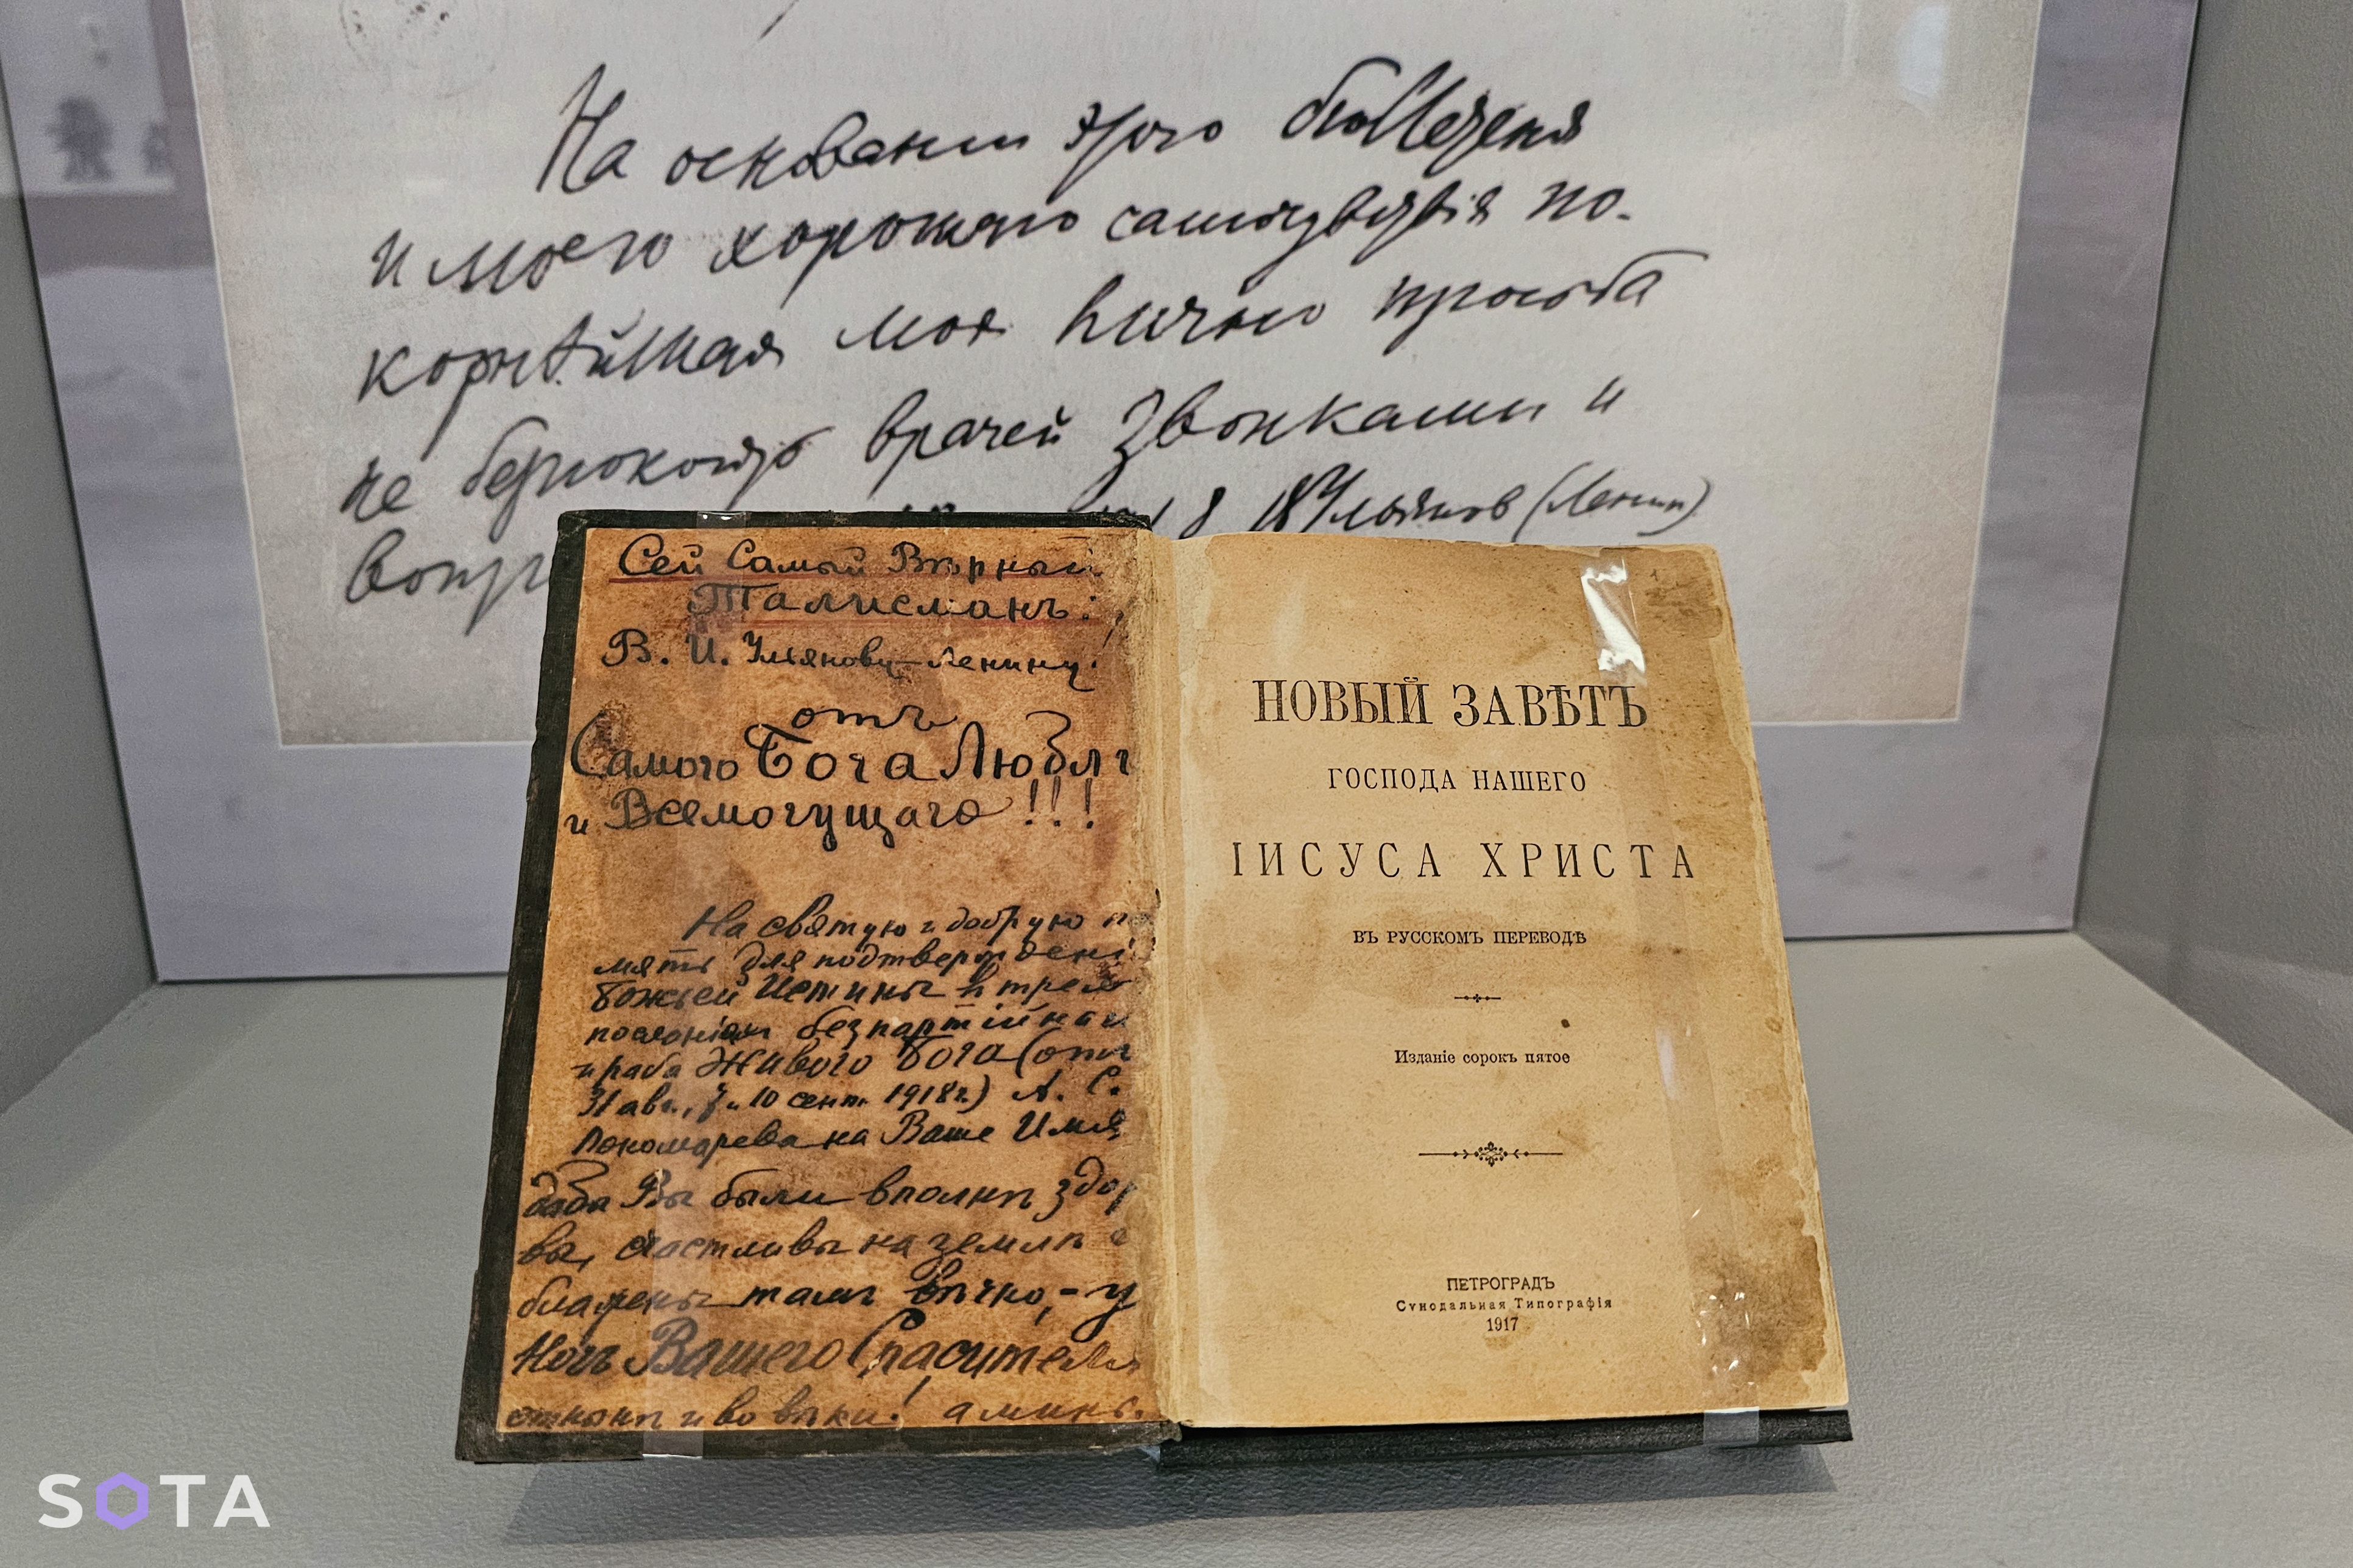 На основании этого бюллетеня
и моего хорошаго самочувствія по-
корнѣйшая моя личная просьба
не безпокоить врачей звонками и
Ульянов (Ленин)
Сей Самый Вѣрный
Талисманъ:
В. И. Ульянову-Ленину!
отъ
Самого Бога Любви
и Всемогущаго!!!
На святую и добрую па
мять для подтвержденія
Божьей Истины въ трехъ
посланіяхъ безпартійнаго
и раба Живого Бога (отъ
31 авг., 7 и 10 сент. 1918 г.) А. С.
Пономарева на Ваше Имя
дабы Вы были вполнѣ здоро
вы, счастливы на землѣ и
блажены тамъ вѣчно, - у
ногъ Вашего Спасителя
отнынѣ и во вѣки! аминь.
НОВЫЙ ЗАВѢТЪ
ГОСПОДА НАШЕГО
ІИСУСА ХРИСТА
ВЪ РУССКОМЪ ПЕРЕВОДѢ
Изданіе сорокъ пятое
ПЕТРОГРАДЪ
Сѵнодальная Типографія
1917
SOTA